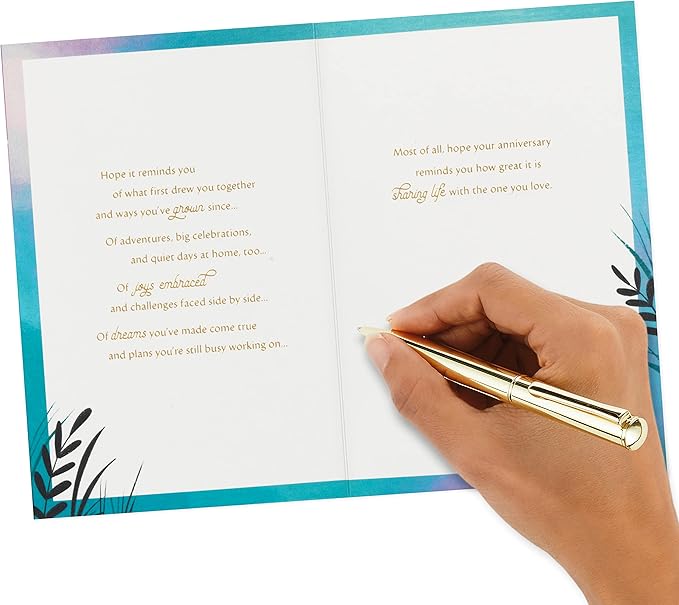 Hope it reminds you
of what first drew you together
and ways you've grown since...
Of adventures, big celebrations,
and quiet days at home, too...
Of joys embraced
and challenges faced side by side...
Of dreams you've made come true
and plans you're still busy working on...
Most of all, hope your anniversary
reminds you how great it is
sharing life with the one you love.